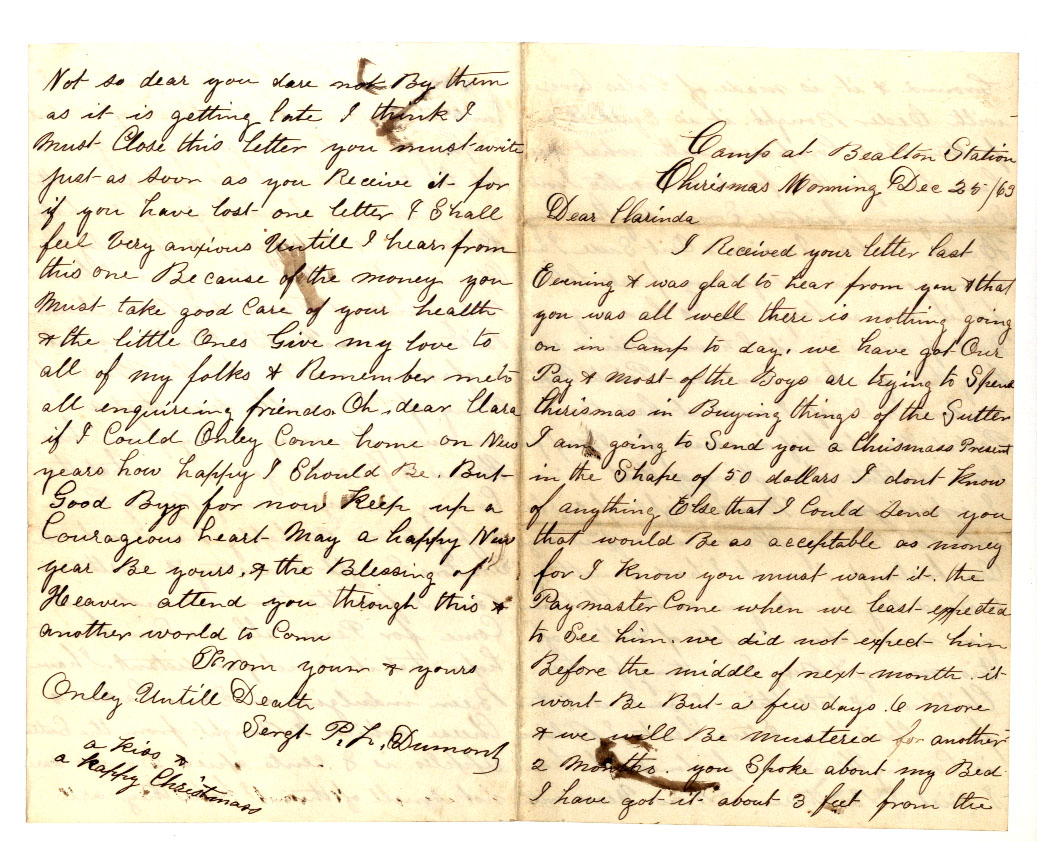 Camp at Bealton Station
Chrismas Morning Dec 25/63
Dear Clarinda
I Received your letter last
Evening & was glad to hear from you & that
you was all well there is nothing going
on in Camp to day. we have got Our
Pay & most of the Boys are trying to Spend
Chrismas in Buying things of the Sutter
I am going to Send you a Chrismass Present
in the Shape of 50 dollars I dont Know
of anything Else that I Could Send you
that would Be as acceptable as money
for I Know you must want it. the
Paymaster Come when we least expected
to See him. we did not expect him
Before the middle of next month. it
wont Be But a few days. 6 more
& we will Be mustered for another
2 Months. you Spoke about my Bed
I have got it about 3 feet from the
Not so dear you dare not By them
as it is getting late I think I
Must Close this letter you must write
just as Soon as you Receive it for
if you have lost one letter I Shall
feel Very anxious Untill I hear from
this one Because of the money you
Must take good Care of your health
& the little Ones Give my love to
all of my folks & Remember me to
all enquireing friends Oh, dear Clara
if I Could Onley Come home on New
years how happy I Should Be. But
Good Byy for now Keep up a
Courageous heart May a happy New
year Be yours, & the Blessing of
Heaven attend you through this &
another world to Come
From yours & yours
Onley Untill Death
Sergt P. L. Dumont
a Kiss &
a happy Christmass